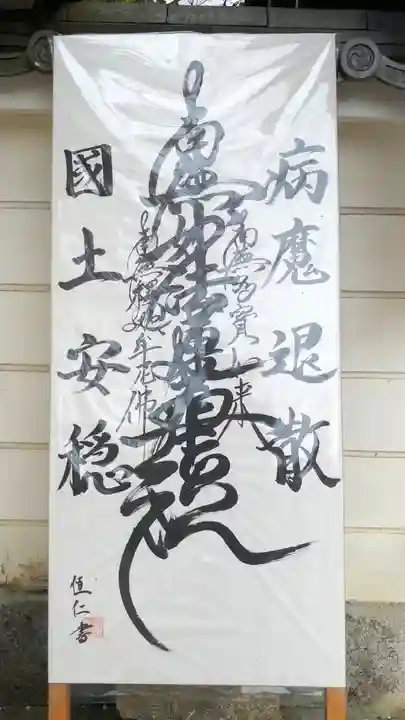 病魔退散
南無多寳如来
南無妙法蓮華経
南無釋迦牟尼佛
國土安穏
恒仁書